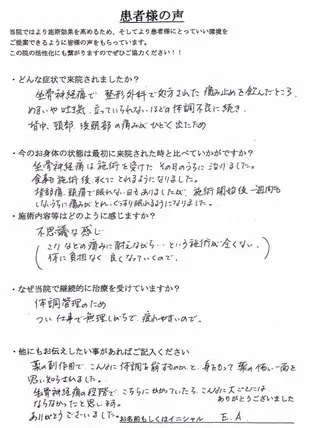 患者様の声
当院ではより施術効果を高めるため、そしてより患者様にとっていい環境を
ご提案できるように皆様の声をもらっています。
この院の活性化にも繋がりますのでぜひご協力ください！！
・どんな症状で来院されましたか？
坐骨神経痛で 整形外科で処方された痛み止めを飲んだところ、
めまいや吐き気、立っていられないほどの体調不良に続き、
背中、頸部、後頭部の痛みがひどく出たため
・今のお身体の状態は最初に来院された時と比べていかがですか？
坐骨神経痛は施術を受けたその日のうちに治りました。
食事も施術後すぐにとれるようになりました。
背部痛、頭痛で眠れない日もありましたが、施術開始後一週間も
しないうちに痛みがとれ、ぐっすり眠れるようになりました。
・施術内容等はどのように感じますか？
不思議な感じ
（コリなどの痛みに耐えながら…という施術が全くない。
体に負担なく良くなっていくので。）
・なぜ当院で継続的に治療を受けていますか？
体調管理のため
つい仕事で無理しがちで、疲れやすいので。
・他にもお伝えしたい事があればご記入ください
薬の副作用で、こんなに体調を崩すものかと、身をもって薬の怖い一面を
思い知らされました。
坐骨神経痛の段階で、こちらにかかっていたら、こんな大ごとには
ならなかったと思います。
ありがとうございました
ありがとうございました。
お名前もしくはイニシャル E.A